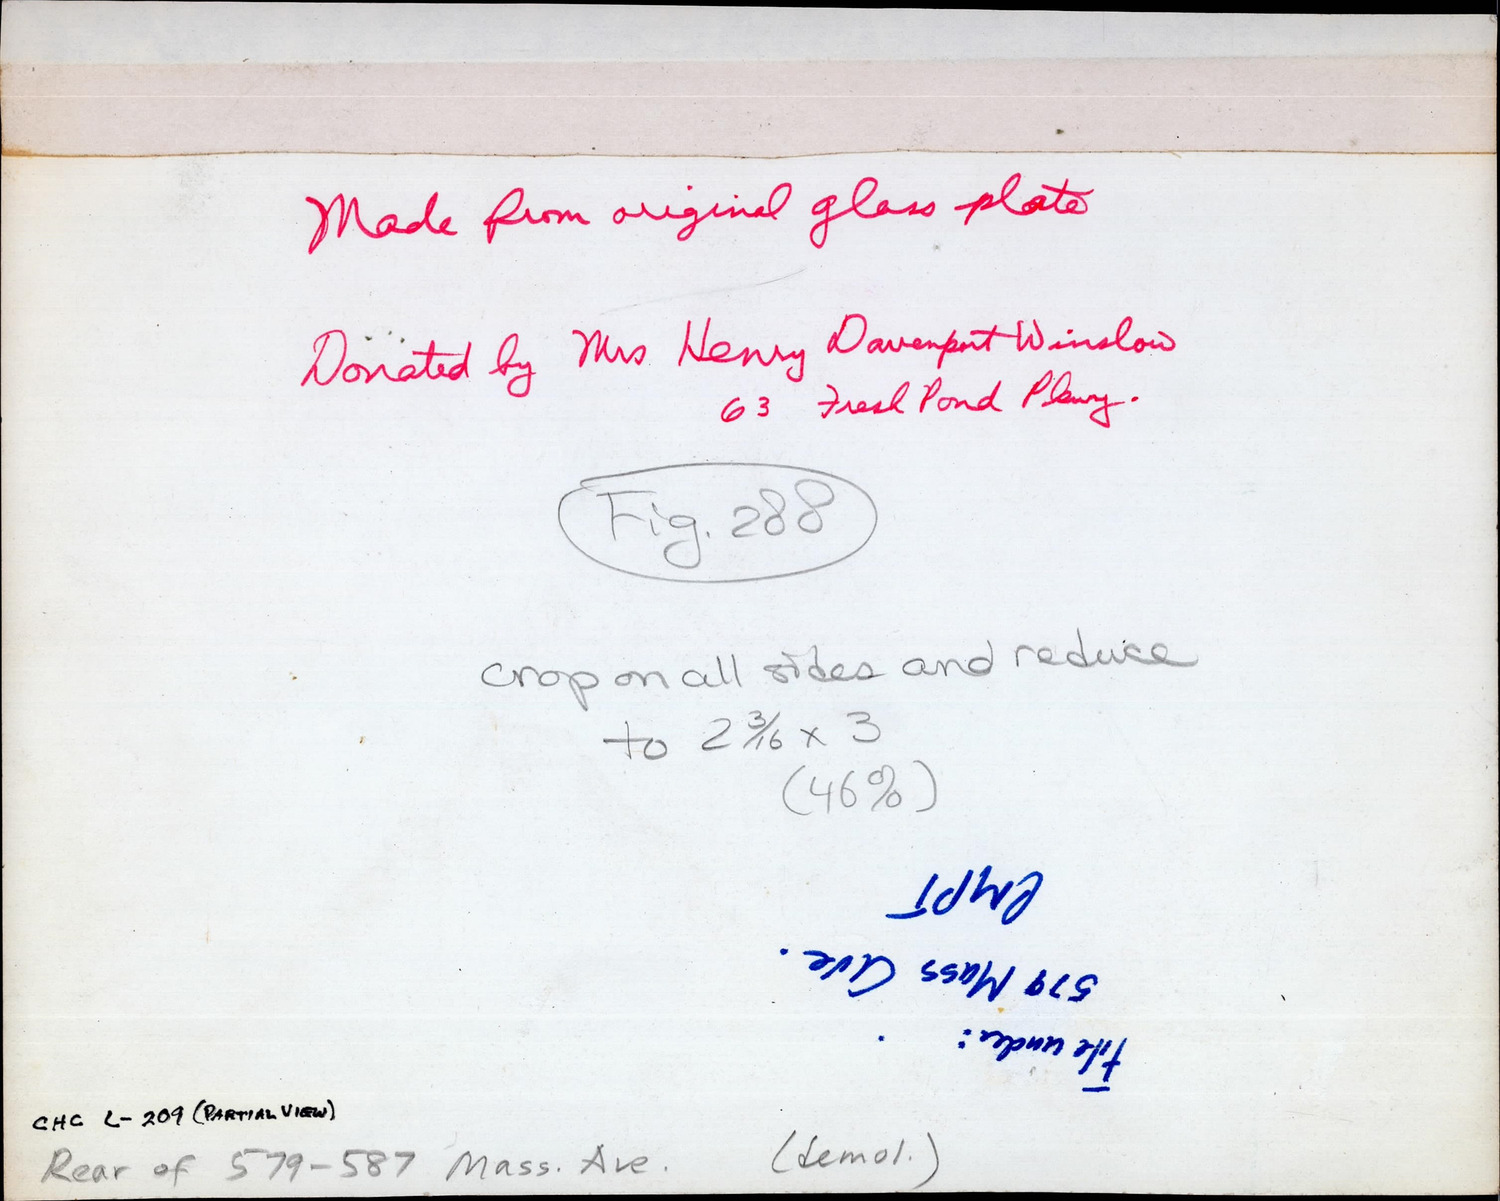 Made from original glass plate
Donated by Mrs Henry Davenport Winslow
63 Fresh Pond Pkwy.
Fig. 288
crop on all sides and reduce
to 2 3/16 x 3
(46%)
File under:
579 Mass Ave.
CHC L-209 (PARTIAL VIEW)
Rear of 579-587 Mass. Ave. (demol.)